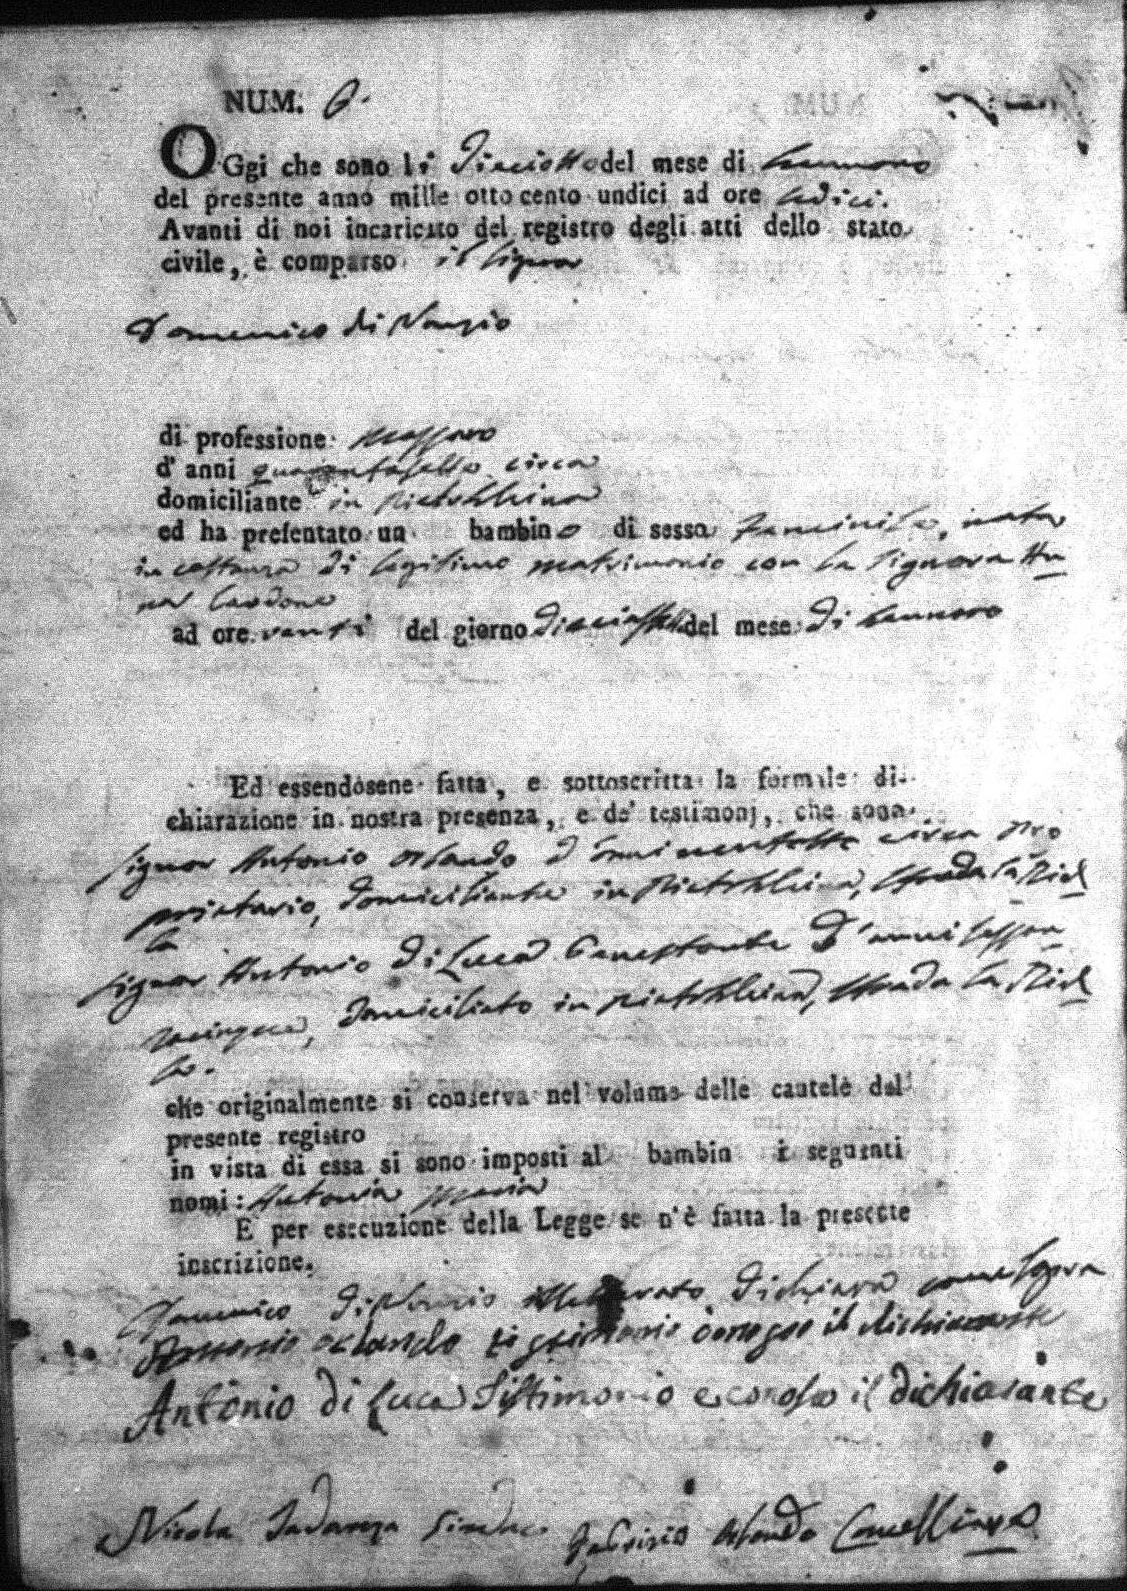 NUM. 6.
OGgi che sono li Dieciotto del mese di Gennaro
del presente anno mille otto cento undici ad ore sedici.
Avanti di noi incaricato del registro degli atti dello stato
civile, è comparso il Signor
Domenico di Nunzio
di professione massaro
d' anni quarantasette circa
domiciliante in Pietrelcina
ed ha presentato un bambino di sesso Feminile, nata
in costanza di legitimo matrimonio con la Signora An
na Cardone
ad ore venti del giorno Dieciasette del mese di Gennaro
Ed essendosene fatta, e sottoscritta la formale di-
chiarazione in nostra presenza, e de' testimonj, che sono
Signor Antonio Orlando d'anni circa Pro
prietario, domiciliante in Pietrelcina, strada la
Signor Antonio di Luca d'anni sessan
tacinque, domiciliato in Pietrelcina, strada la
che originalmente si conserva nel volume delle cautele del
presente registro
in vista di essa si sono imposti al bambin i seguenti
nomi: Antonia Maria
E per esecuzione della Legge se n'è fatta la presente
inscrizione.
Domenico di Nunzio illetterato dichiara come sopra
Antonio Orlando testimonio conosco il dichiarante
Antonio di Luca Testimonio e conosco il dichiarante
Nicola Sindaco Fabrizio Orlando Cancelliere